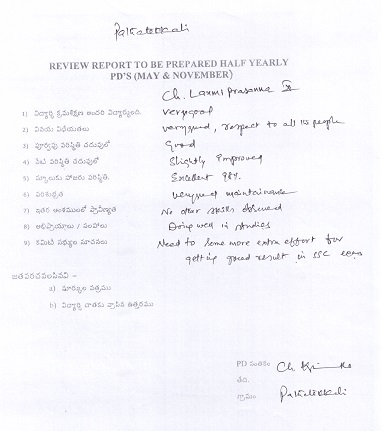 Palatekkali
REVIEW REPORT TO BE PREPARED HALF YEARLY
PD'S (MAY & NOVEMBER)
Ch. Laxmi Prasanna IX
1) విద్యార్థి క్రమశిక్షణ అందరి విద్యార్థులది. Very good
2) వినయ విధేయతలు very good, respect to all its people
3) పూర్వపు పరిస్థితి చదువులో Good
4) నేటి పరిస్థితి చదువులో Slightly Improved
5) స్కూలుకు హాజరు పరిస్థితి. Excellent 98%.
6) పరిశుభ్రత very good maintainance
7) ఇతర అంశములలో ప్రావీణ్యత No other skills observed
8) అభిప్రాయాలు / సలహాలు Doing well in studies
9) కమిటీ సభ్యుల సూచనలు Need to some more extra effort for
getting good result in SSC
జతపరచవలసినవి –
a) మార్కుల పత్రము
b) విద్యార్థి దాతకు వ్రాసిన ఉత్తరము
PD సంతకం Ch
తేది.
గ్రామం Palatekkali